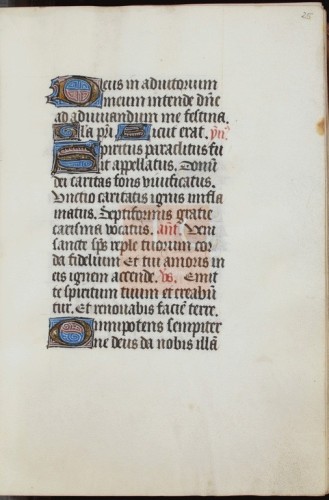 25
Deus in adiutorium
meum intende dñe
ad adiuvandum me festina.
Gła pr̃i Sicut erat. ym̃
Spiritus paraclitus fu
it appellatus. Donũ
dei caritas fons vivificatus.
Unctio caritatis ignis infla
matus. Septiformis gratie
carisma vocatus. añt. Veni
sancte sp̃s reple tuorum cor
da fidelium Et tui amoris in
eis ignem accende. vs. Emit
te spiritum tuum et creabũ
tur. Et renovabis faciẽ terre.
Omnipotens sempiter
ne deus da nobis illã